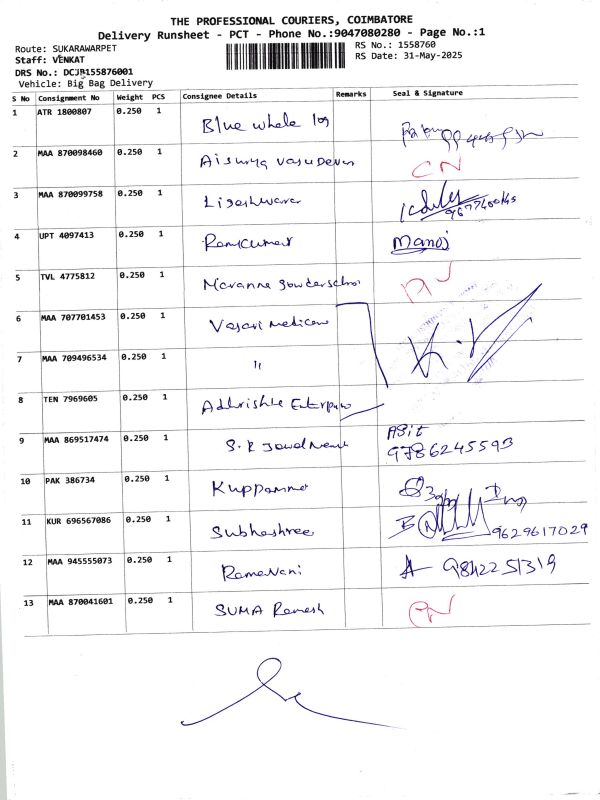 THE PROFESSIONAL COURIERS, COIMBATORE
Delivery Runsheet - PCT - Phone No.:9047080280 - Page No.:1
Route: SUKARAWARPET
RS No.: 1558760
Staff: VENKAT
RS Date: 31-May-2025
DRS No.: DCJB155876001
Vehicle: Big Bag Delivery
S No Consignment No Weight PCS Consignee Details Remarks Seal & Signature
1 ATR 1800807 0.250 1 Blue whale
2 MAA 870098460 0.250 1 CN
3 MAA 870099758 0.250 1 Ligeshwaran
4 UPT 4097413 0.250 1 Ramkumar Manoj
5 TVL 4775812 0.250 1
6 MAA 707701453 0.250 1 Vasavi medicaw
7 MAA 709496534 0.250 1 "
8 TEN 7969605 0.250 1
9 MAA 869517474 0.250 1 S.R Asit
9786245593
10 PAK 386734 0.250 1 Kuppamma
11 KUR 696567086 0.250 1 Subhashree 9629617029
12 MAA 945555073 0.250 1 Ramavani A 9842251319
13 MAA 870041601 0.250 1 SUMA Ramesh